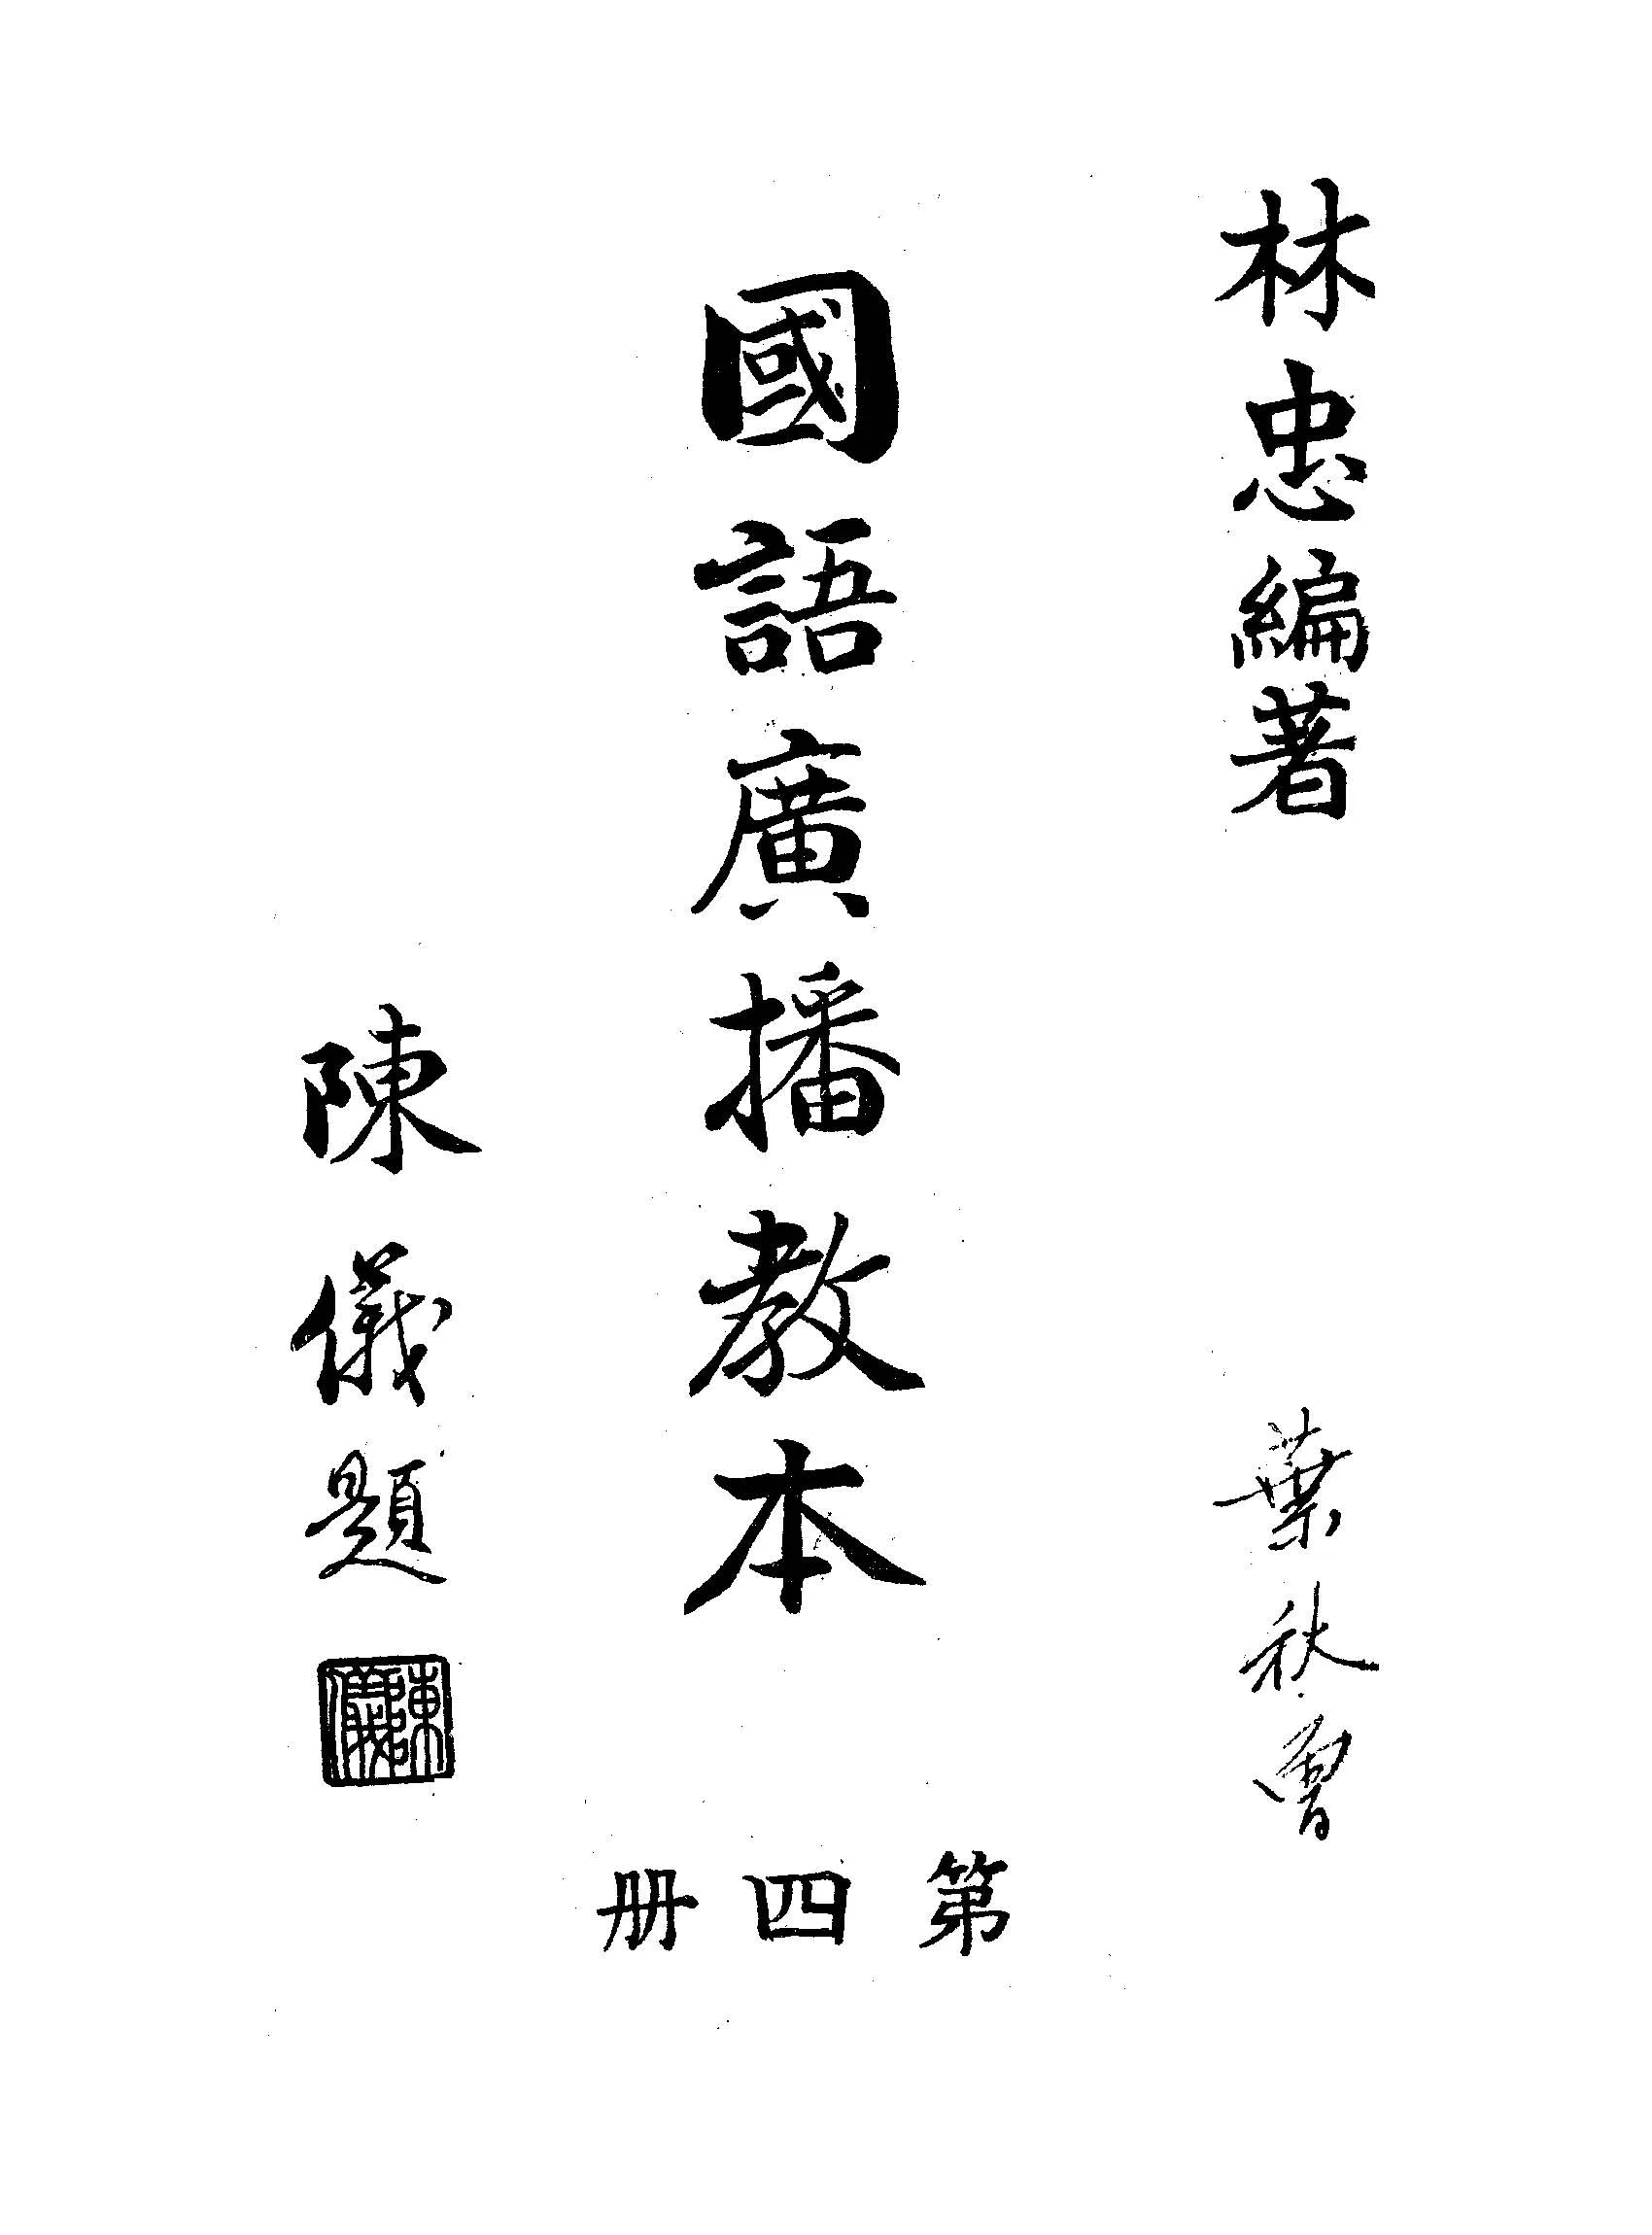 林忠編著
葉秋
國語廣播教本
第四册
陳儀題
陳儀